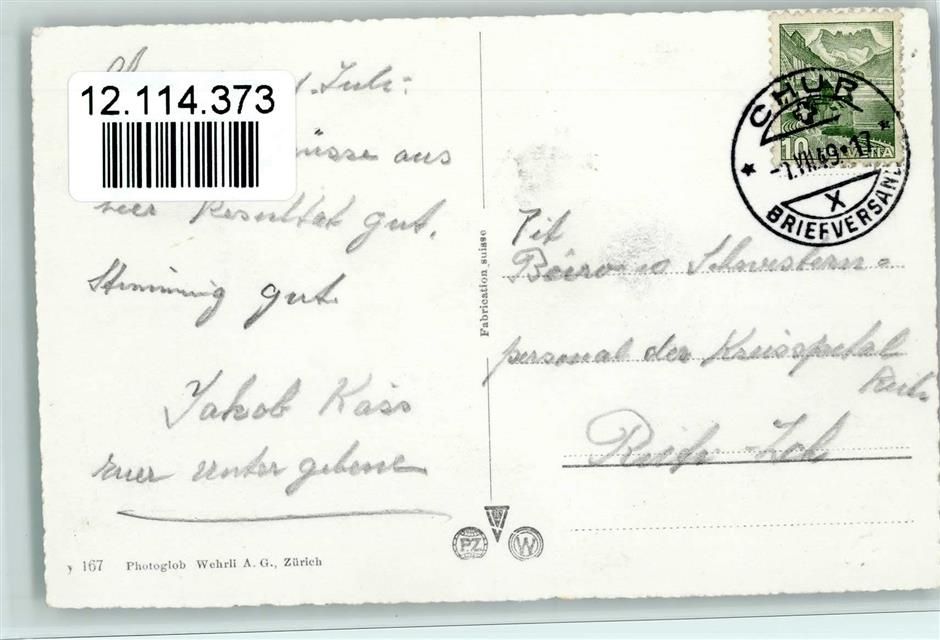 12.114.373
Juli
aus
hier Resultat gut.
Stimmung gut
Jakob Käss
Euer unter gebene
y 167 Photoglob Wehrli A. G., Zürich
Fabrication suisse
PZ
W
HELVETIA
10
CHUR
-1.VII.49*17
X
BRIEFVERSAND
Tit
Büro Schwestern=
personal der Kreisspital
Rüti
Rüti-Zch